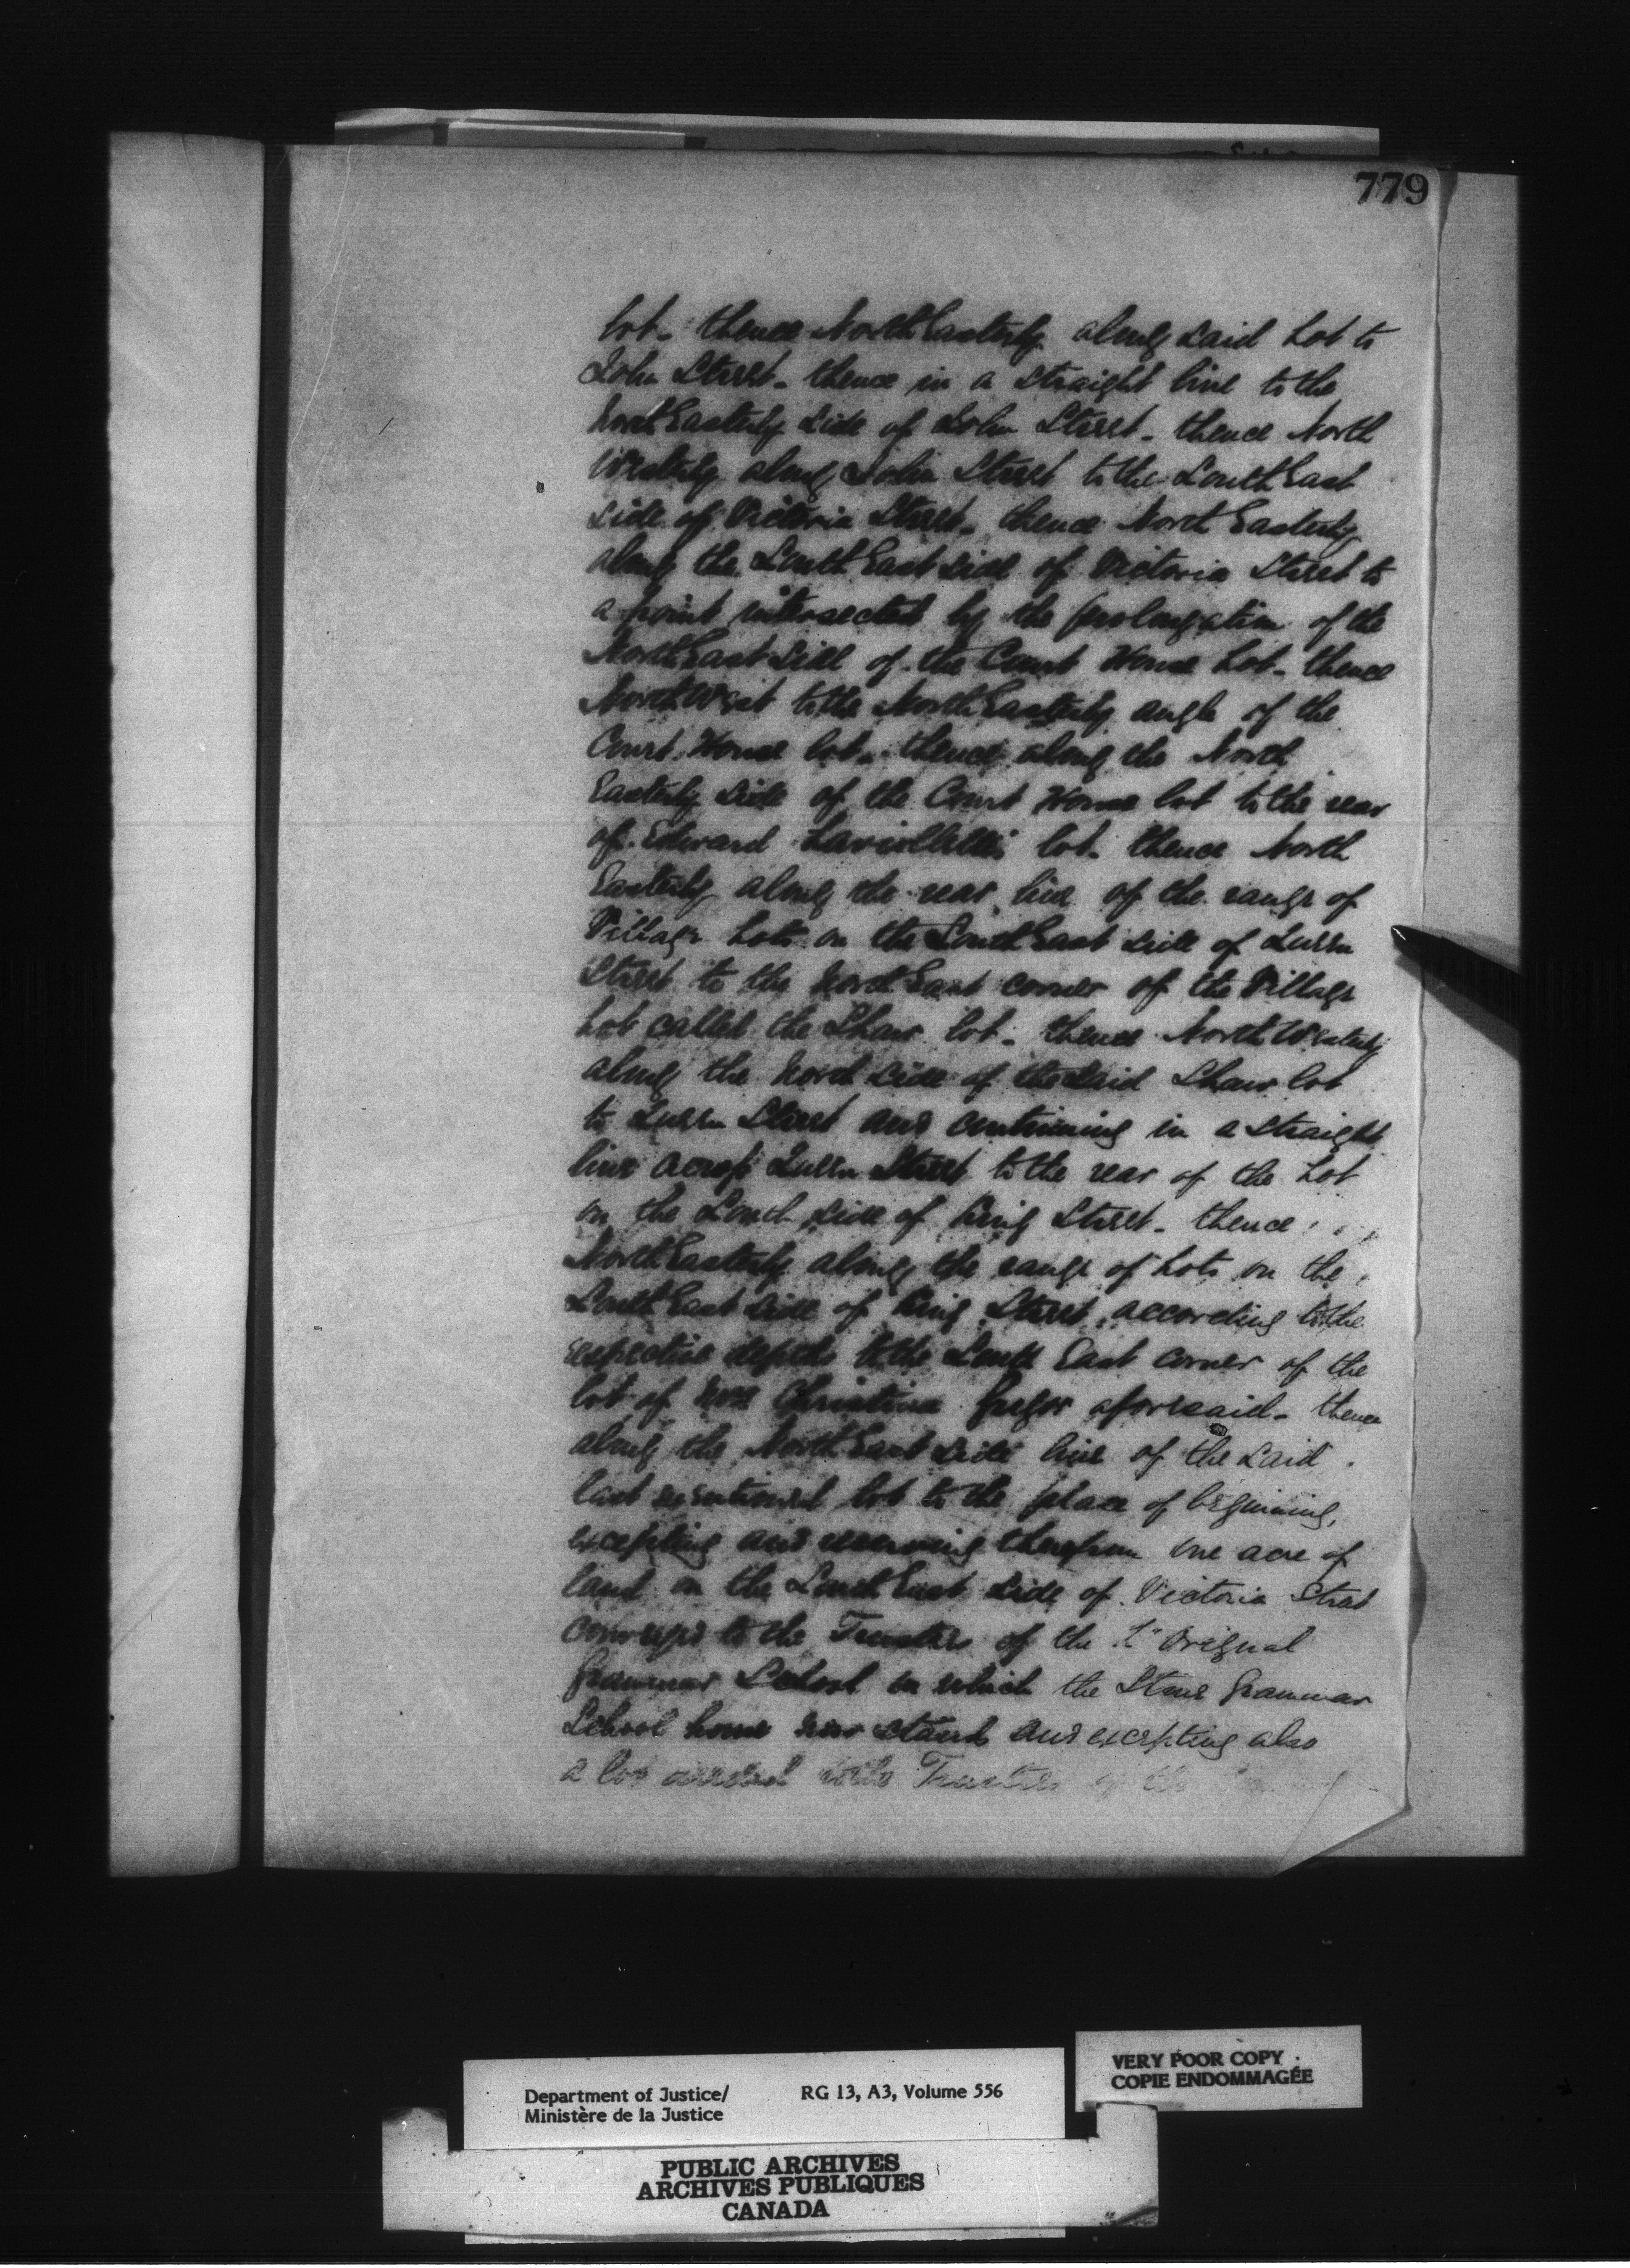 779
lot. thence North Easterly along said Lot to
John Street. thence in a straight line to the
North Easterly side of John Street. thence North
Westerly along John Street to the South East
side of Victoria Street. thence North Easterly
along the South East side of Victoria Street to
a point intersected by the prolongation of the
North East side of the Court House Lot. thence
North West to the North Easterly angle of the
Court House lot. thence along the North
Easterly side of the Court House lot to the rear
of Edward lot. thence North
Easterly along the rear line of the range of
Village Lots on the South East side of Queen
Street to the North East corner of the Village
Lot called the Shaw lot. thence North Westerly
along the North side of the said Shaw lot
to Queen Street and continuing in a straight
line across Queen Street to the rear of the Lot
on the South side of King Street. thence
North Easterly along the range of Lots on the
South East side of King Street according to the
respective depths to the South East corner of the
lot of Christina aforesaid. thence
along the North East side line of the said
last mentioned lot to the place of beginning,
excepting and reserving therefrom one acre of
land on the South East side of Victoria Street
conveyed to the Trustees of the L'Orignal
Grammar School on which the Stone Grammar
School house now stands and excepting also
a lot Trustees of the
Department of Justice/
Ministère de la Justice
RG 13, A3, Volume 556
VERY POOR COPY
COPIE ENDOMMAGÉE
PUBLIC ARCHIVES
ARCHIVES PUBLIQUES
CANADA